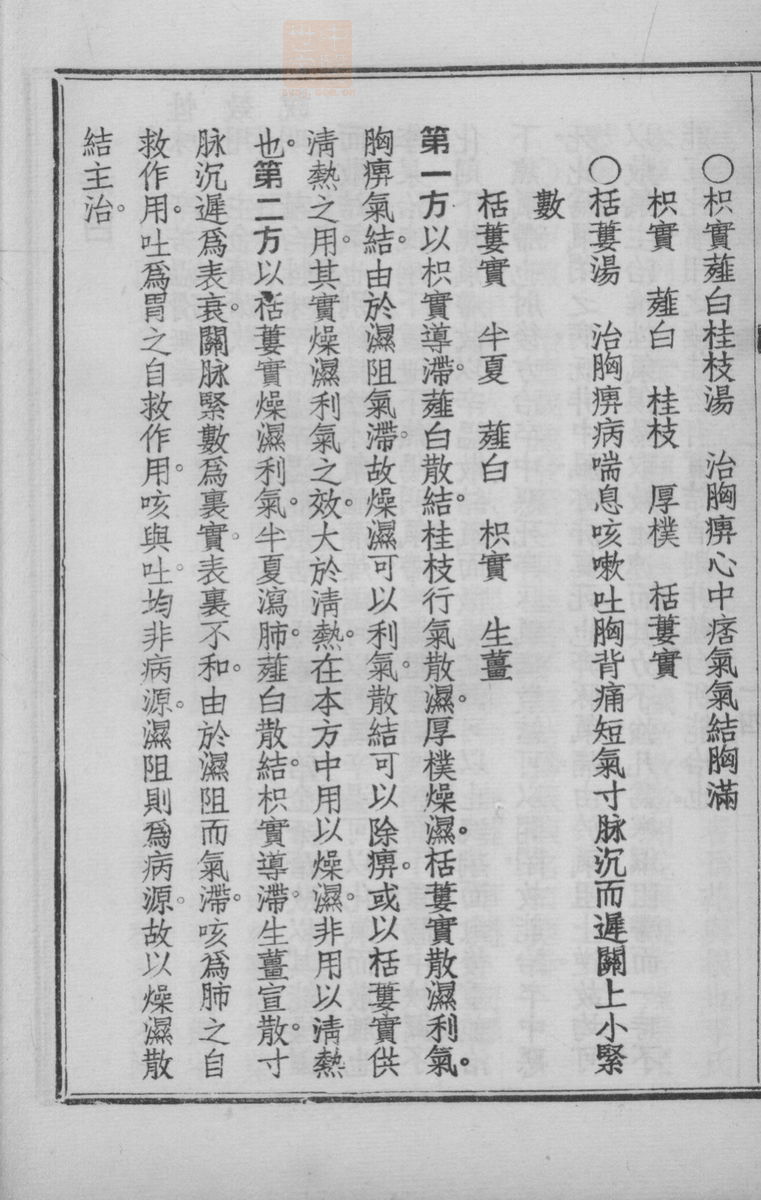 ○枳實薤白桂枝湯　治胸痹心中痞氣氣結胸滿
枳實　薤白　桂枝　厚樸　栝蔞實
○栝蔞湯　治胸痹病喘息咳嗽吐胸背痛短氣寸脉沉而遲關上小緊
數
栝蔞實　半夏　薤白　枳實　生薑
第一方以枳實導滯。薤白散結。桂枝行氣散濕。厚樸燥濕。栝蔞實散濕利氣。
胸痹氣結。由於濕阻氣滯。故燥濕可以利氣。散結可以除痹。或以栝蔞實供
淸熱之用。其實燥濕利氣之效。大於淸熱。在本方中用以燥濕。非用以淸熱
也。第二方以栝蔞實燥濕利氣。半夏瀉肺。薤白散結。枳實導滯。生薑宣散。寸
脉沉遲爲表衰。關脉緊數爲裏實。表裏不和。由於濕阻而氣滯。咳爲肺之自
救作用。吐爲胃之自救作用。咳與吐。均非病源。濕阻則爲病源。故以燥濕散
結主治。